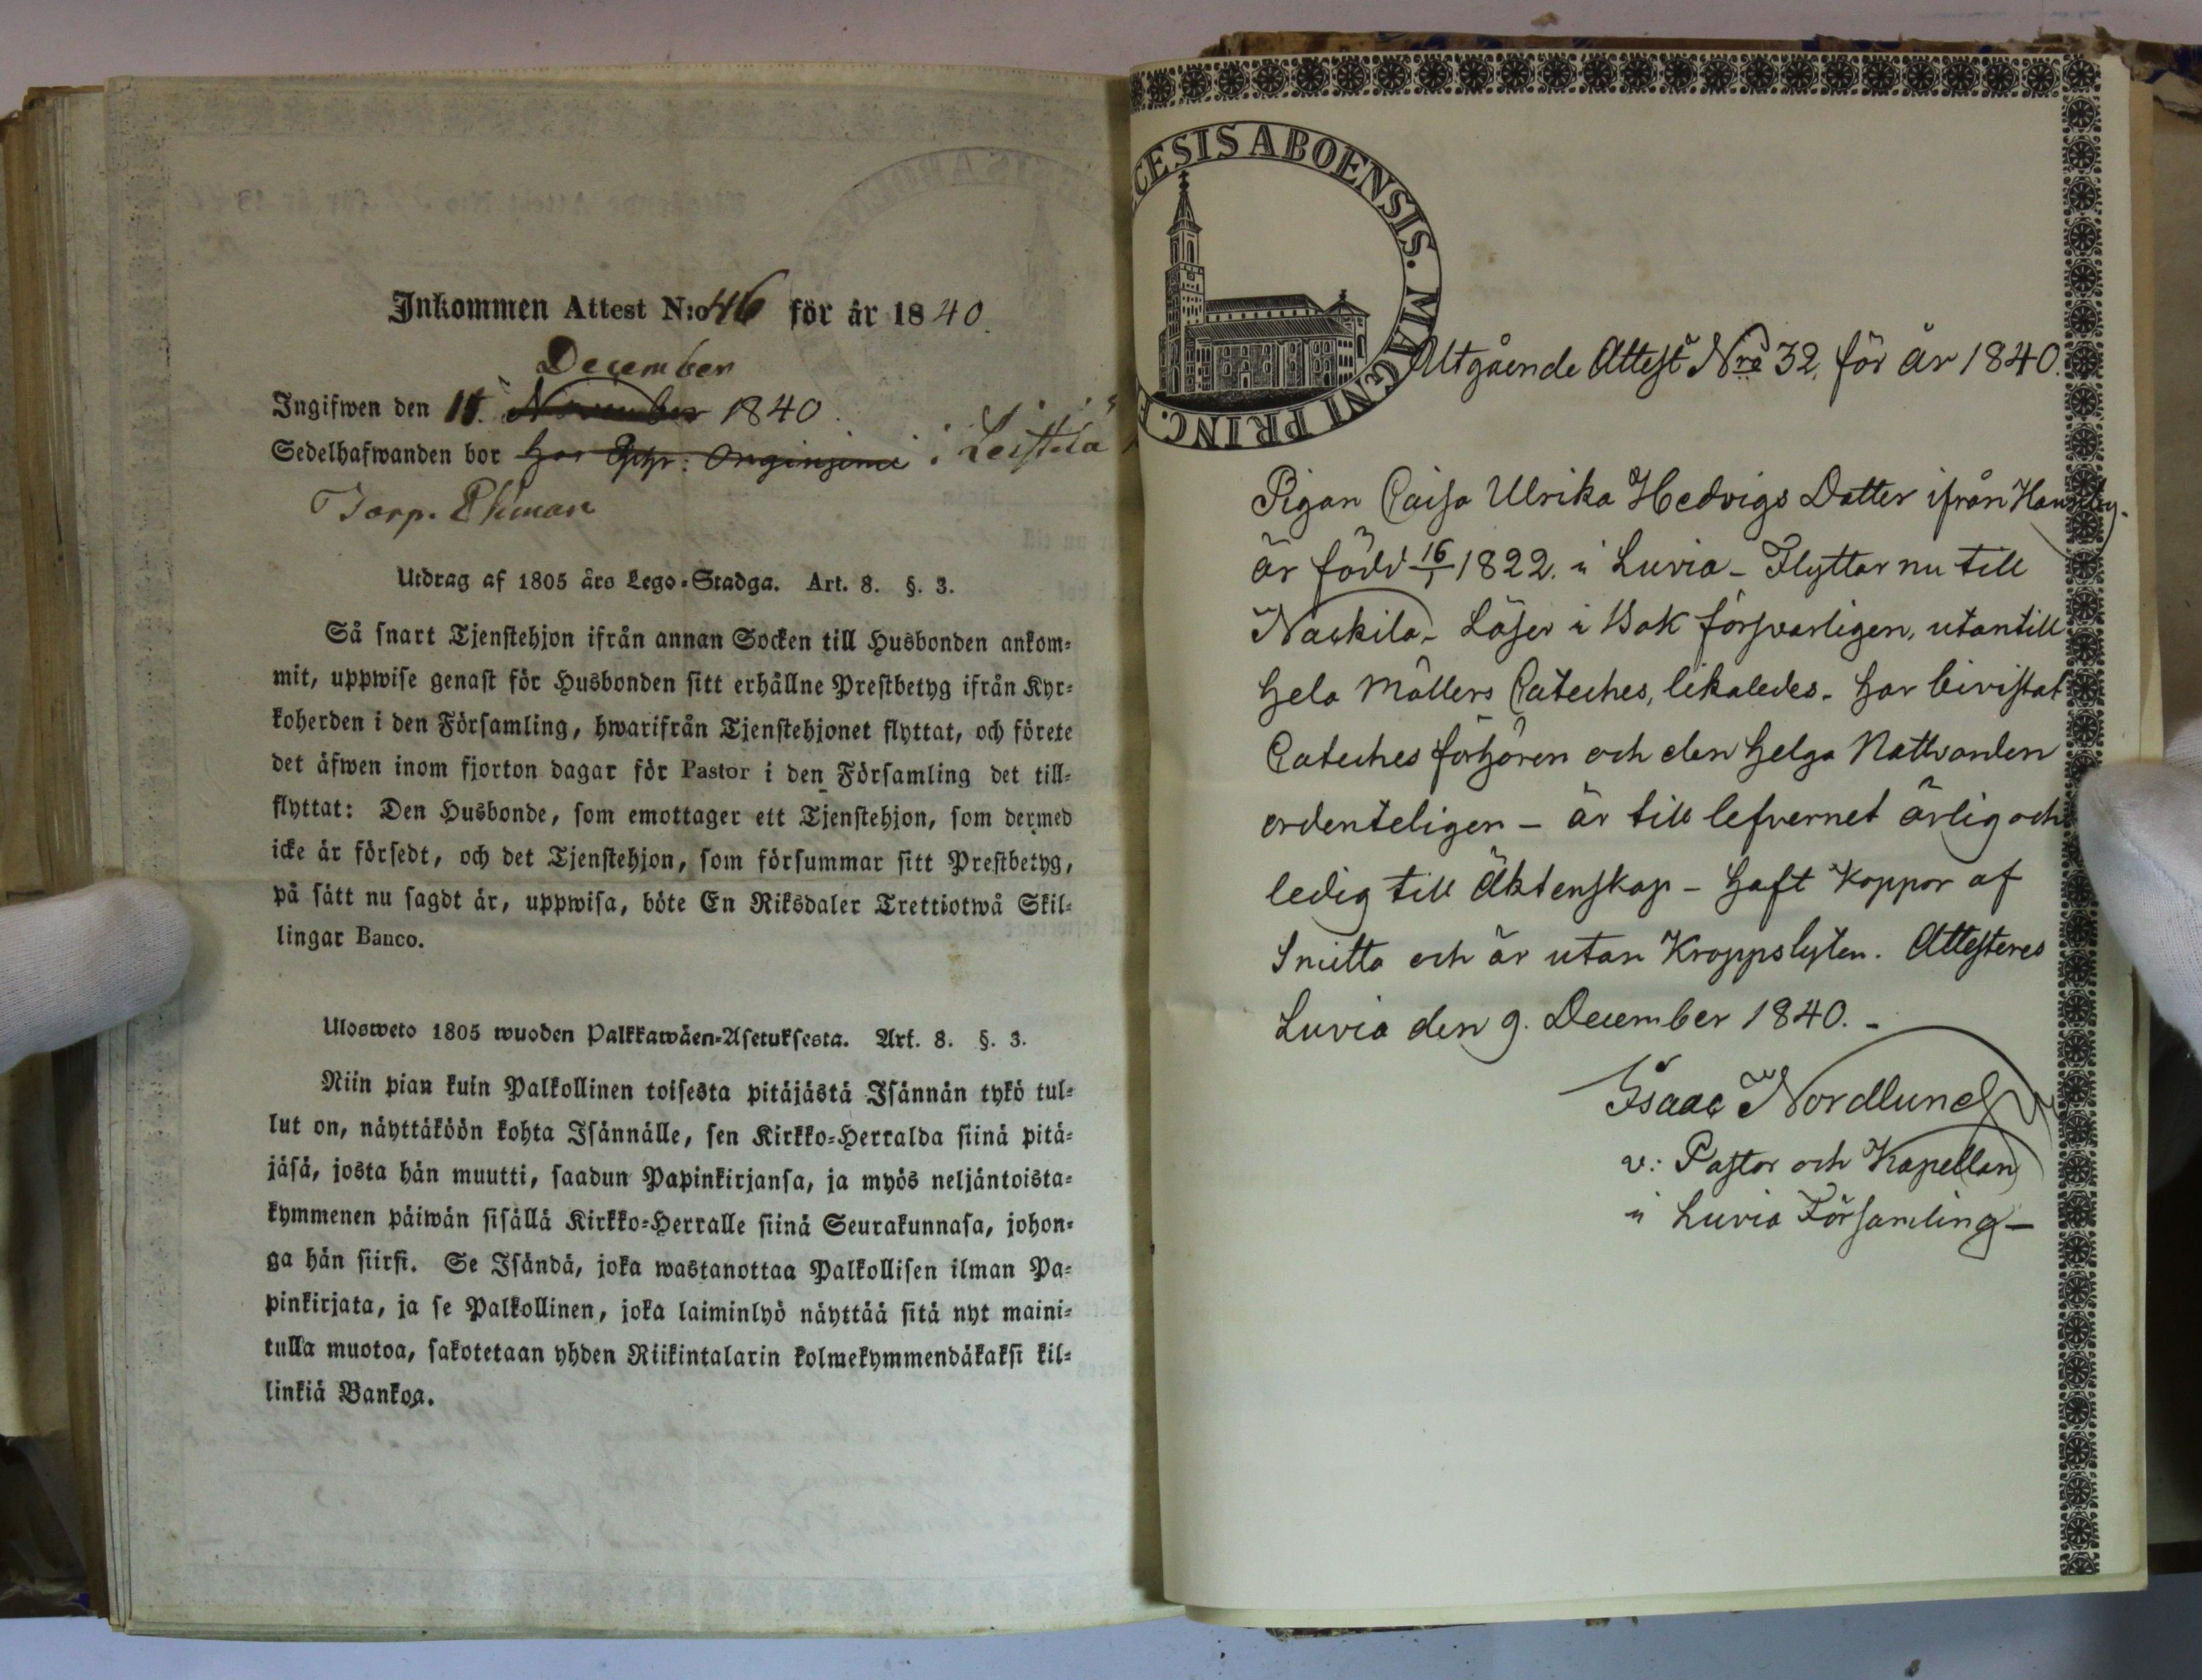 Inkommen Attest N:o 46 för år 1840.
December
Ingifwen den 11. November 1840.
Sedelhafwanden bor hos i Leistilä
Torp. Ekman
Utdrag af 1805 års Lego-Stadga. Art. 8. §. 3.
Så snart Tjenstehjon ifrån annan Socken till Husbonden ankom-
mit, uppwise genast för Husbonden sitt erhållne Prestbetyg ifrån Kyr-
koherden i den Församling, hwarifrån Tjenstehjonet flyttat, och förete
det äfwen inom fjorton dagar för Pastor i den Församling det till-
flyttat: Den Husbonde, som emottager ett Tjenstehjon, som dermed
icke är försedt, och det Tjenstehjon, som försummar sitt Prestbetyg,
på sätt nu sagdt är, uppwisa, böte En Riksdaler Trettiotwå Skil-
lingar Banco.
Ulosweto 1805 wuoden Palkkawäen-Asetuksesta. Art. 8. §. 3.
Niin pian kuin Palkollinen toisesta pitäjästä Isännän tykö tul-
lut on, näyttäköön kohta Isännälle, sen Kirkko-Herralda siinä pitä-
jäsä, josta hän muutti, saadun Papinkirjansa, ja myös neljäntoista-
kymmenen päiwän sisällä Kirkko-Herralle siinä Seurakunnasa, johon-
ga hän siirsi. Se Isändä, joka wastanottaa Palkollisen ilman Pa-
pinkirjata, ja se Palkollinen, joka laiminlyö näyttää sitä nyt maini-
tulla muotoa, sakotetaan yhden Riikintalarin kolmekymmendäkaksi kil-
linkiä Bankoa.
CESIS ABOENSIS. MAGNI PRINC. F
Utgående Attest Nro 32, för år 1840.
Pigan Caisa Ulrika Hedvigs Dotter ifrån
är född 16/1 1822. i Luvia - Flyttar nu till
Nackila - Läser i Bok försvarligen, utantill
hela Möllers Cateches, likaledes. har bivistat
Cateches förhören och den helga Nattvarden
ordenteligen - är till lefvernet ärlig och
ledig till Äktenskap - haft Koppor af
Smitta och är utan Kroppslyten. Attesteres
Luvia den 9. December 1840. -
Isaac Nordlund
v: Pastor och Kapellan
i Luvia Församling -